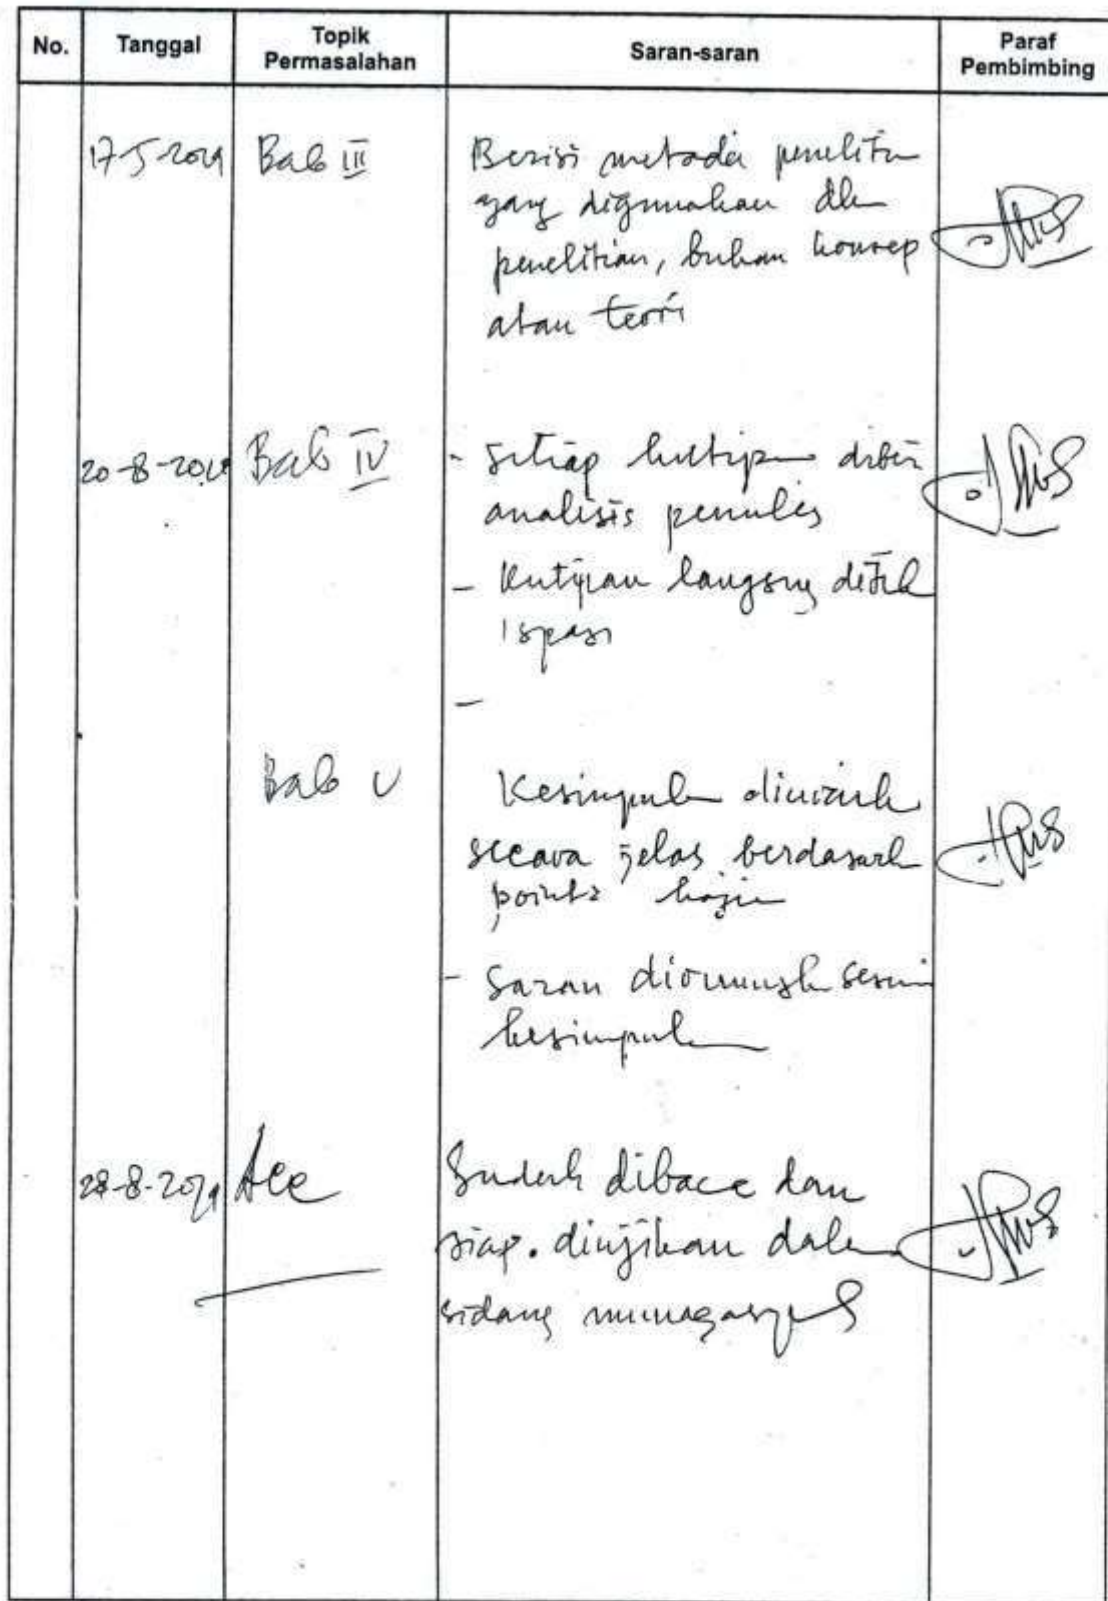 No. Tanggal Topik Permasalahan Saran-saran Paraf Pembimbing
17-5-2019 Bab III Berisi metoda penelitn
yang digunakan dlm
penelitian, bukan konsep
atau teori
20-8-2019 Bab IV - Setiap kutipan diberi
analisis penulis
- Kutipan langsung
1 spasi
-
Bab V Kesimpulan
secara jelas berdasark
point2
- Saran sesuai
kesimpulan
28-8-2019 Acc Sudah dibaca dan
siap. diujikan dalam
sidang munaqasyah